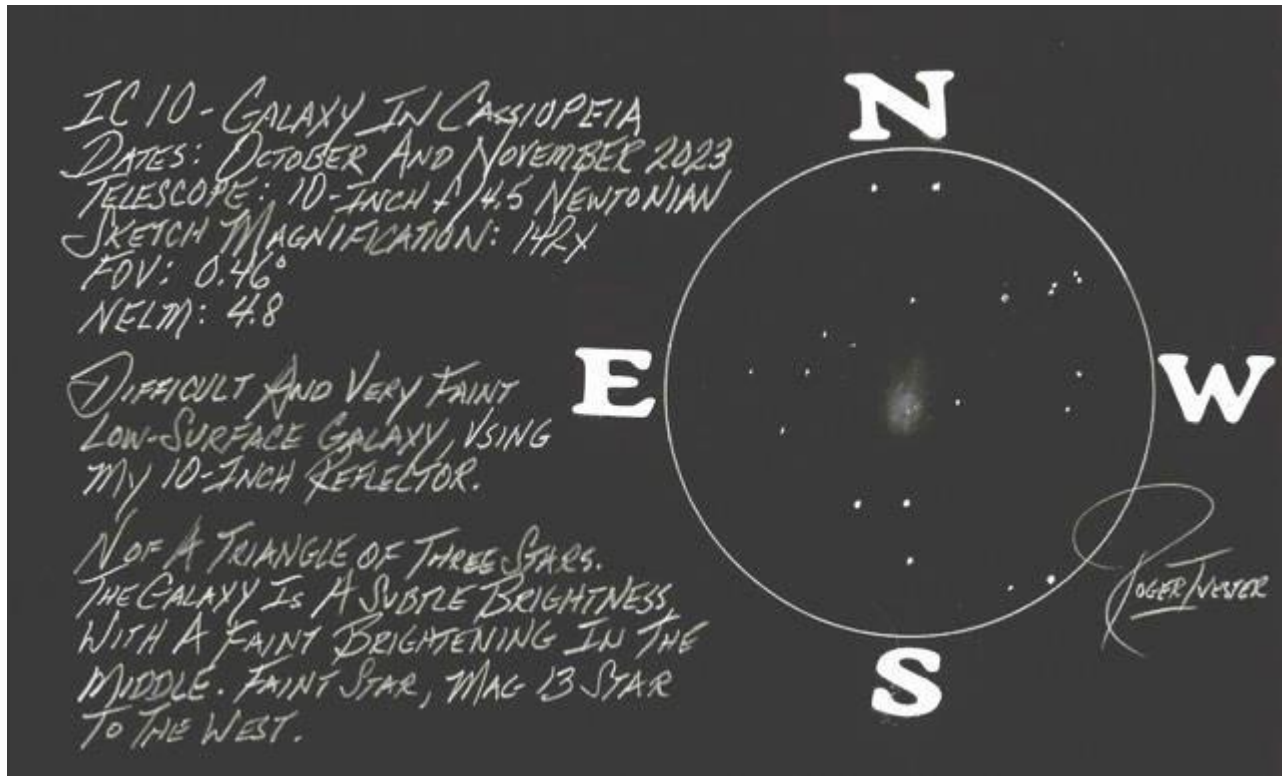 IC 10 - GALAXY IN CASSIOPEIA
DATES: OCTOBER AND NOVEMBER 2023
TELESCOPE: 10-INCH f/4.5 NEWTONIAN
SKETCH MAGNIFICATION: 142X
FOV: 0.46°
NELM: 4.8
DIFFICULT AND VERY FAINT
LOW-SURFACE GALAXY, USING
MY 10-INCH REFLECTOR.
N OF A TRIANGLE OF THREE STARS.
THE GALAXY IS A SUBTLE BRIGHTNESS,
WITH A FAINT BRIGHTENING IN THE
MIDDLE. FAINT STAR, MAG 13 STAR
TO THE WEST.
N
E
W
S
ROGER IVESTER